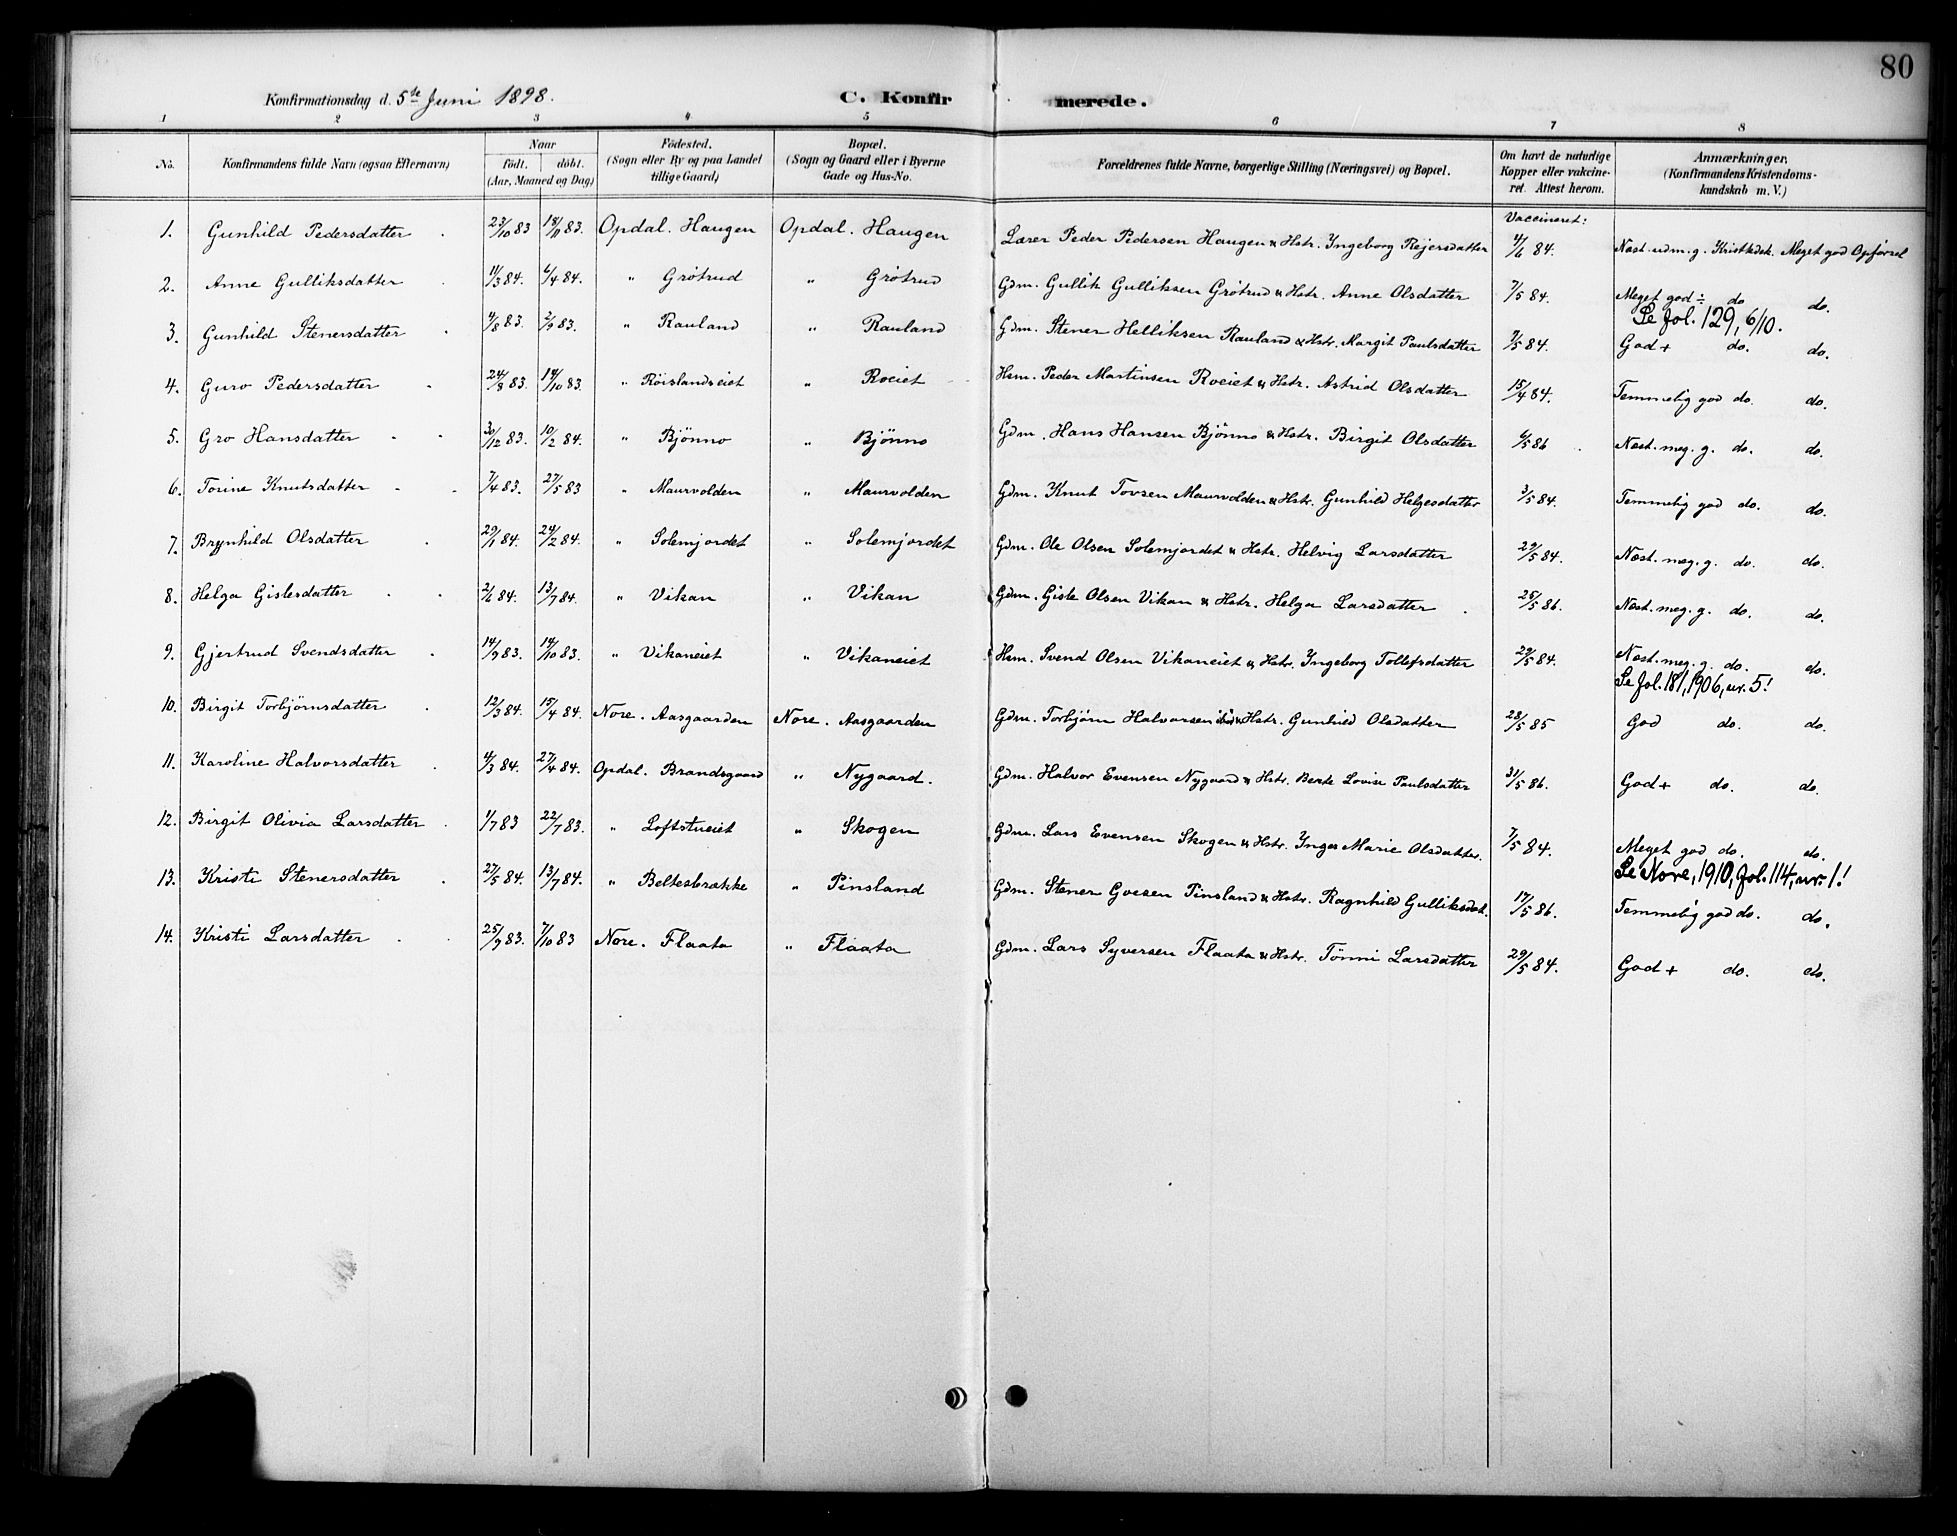 80
Konfirmationsdag d. 5te Juni 1898. C. Konfirmerede.
1 2 3 4 5 6 7 8
No. Konfirmandens fulde Navn (ogsaa Efternavn) Naar født. døbt. (Aar, Maaned og Dag) Fødested. (Sogn eller By og paa Landet tillige Gaard) Bopæl. (Sogn og Gaard eller i Byerne Gade og Hus-No. Forældrenes fulde Navne, borgerlige Stilling (Næringsvei) og Bopæl. Om havt de naturlige Kopper eller vakcineret. Attest herom. Anmærkninger. (Konfirmandens Kristendomskundskab m. V.)
Vaccineret:
1. Gunhild Pedersdatter 23/10 83 18/11 83. Opdal. Haugen Opdal. Haugen Lærer Peder Pedersen Haugen & Hstr. Ingeborg Rejersdatter 4/6 84. Næst. udm. g. Kristkdsk. Meget god Opførsel
2. Anne Gulliksdatter 11/3 84. 6/4 84. " Grøtrud " Grøtrud Gdm. Gullik Gulliksen Grøtrud & Hstr. Anne Olsdatter 7/5 84. Meget god ÷ do do.
Se fol. 129, 6/10.
3. Gunhild Stenersdatter 4/8 83. 2/9 83. " Rauland " Rauland Gdm. Stener Helliksen Rauland & Hstr. Margit Paulsdatter 7/5 84. God + do. do.
4. Guro Pedersdatter 24/8 83. 14/10 83. " Røislandseiet " Roeiet Hsm. Peder Martinsen Roeiet & Hstr. Astrid Olsdatter 15/4 84. Temmelig god do. do.
5. Gro Hansdatter 30/12 83. 10/2 84. " Bjønno " Bjønno Gdm. Hans Hansen Bjønno & Hstr. Birgit Olsdatter 6/5 86 Næst. meg. g. do. do.
6. Torine Knutsdatter 7/4 83. 27/5 83 " Maurvolden " Maurvolden Gdm. Knut Tovsen Maurvolden & Hstr. Gunhild Helgesdatter 3/5 84. Temmelig god do. do.
7. Brynhild Olsdatter 29/1 84. 24/2 84. " Solemjordet " Solemjordet Gdm. Ole Olsen Solemjordet & Hstr. Helvig Larsdatter 29/5 84. Næst. meg. g. do. do.
8. Helga Gislesdatter 2/6 84. 13/7 84. " Vikan " Vikan Gdm. Gisle Olsen Vikan & Hstr. Helga Larsdatter 25/5 86. Næst. meg. g. do. do.
9. Gjertrud Svendsdatter 14/9 83. 14/10 83. " Vikaneiet " Vikaneiet Hsm. Svend Olsen Vikaneiet & Hstr. Ingeborg Tollefsdatter 29/5 84. Næst. meg. g. do. do.
Se fol. 181, 1906, nr. 5!
10. Birgit Torbjørnsdatter 12/3 84. 15/4 84. Nore. Aasgaarden Nore. Aasgaarden Gdm. Torbjørn Halvorsen ibid & Hstr. Gunhild Olsdatter 23/5 85 God do. do.
11. Karoline Halvorsdatter 4/3 84. 27/4 84. Opdal. Brandsgaard " Nygaard. Gdm. Halvor Evensen Nygaard & Hstr. Berte Lovise Paulsdatter 31/5 86. God + do. do.
12. Birgit Olivia Larsdatter 1/7 83 22/7 83. " Loftstueiet " Skogen Gdm. Lars Evensen Skogen & Hstr. Inger Marie Olsdatter. 7/5 84. Meget god do. do.
Se Nore, 1910, fol. 114, nr. 1!
13. Kristi Stenersdatter 27/5 84. 13/7 84. " Beltesbrække " Tinsland Gdm. Stener Gvesen Tinsland & Hstr. Ragnhild Gulliksdat. 17/5 86. Temmelig god do. do.
14. Kristi Larsdatter 25/9 83. 7/10 83 Nore. Flaata " Flaata Gdm. Lars Syversen Flaata & Hstr. Tønni Larsdatter 29/5 84. God + do. do.